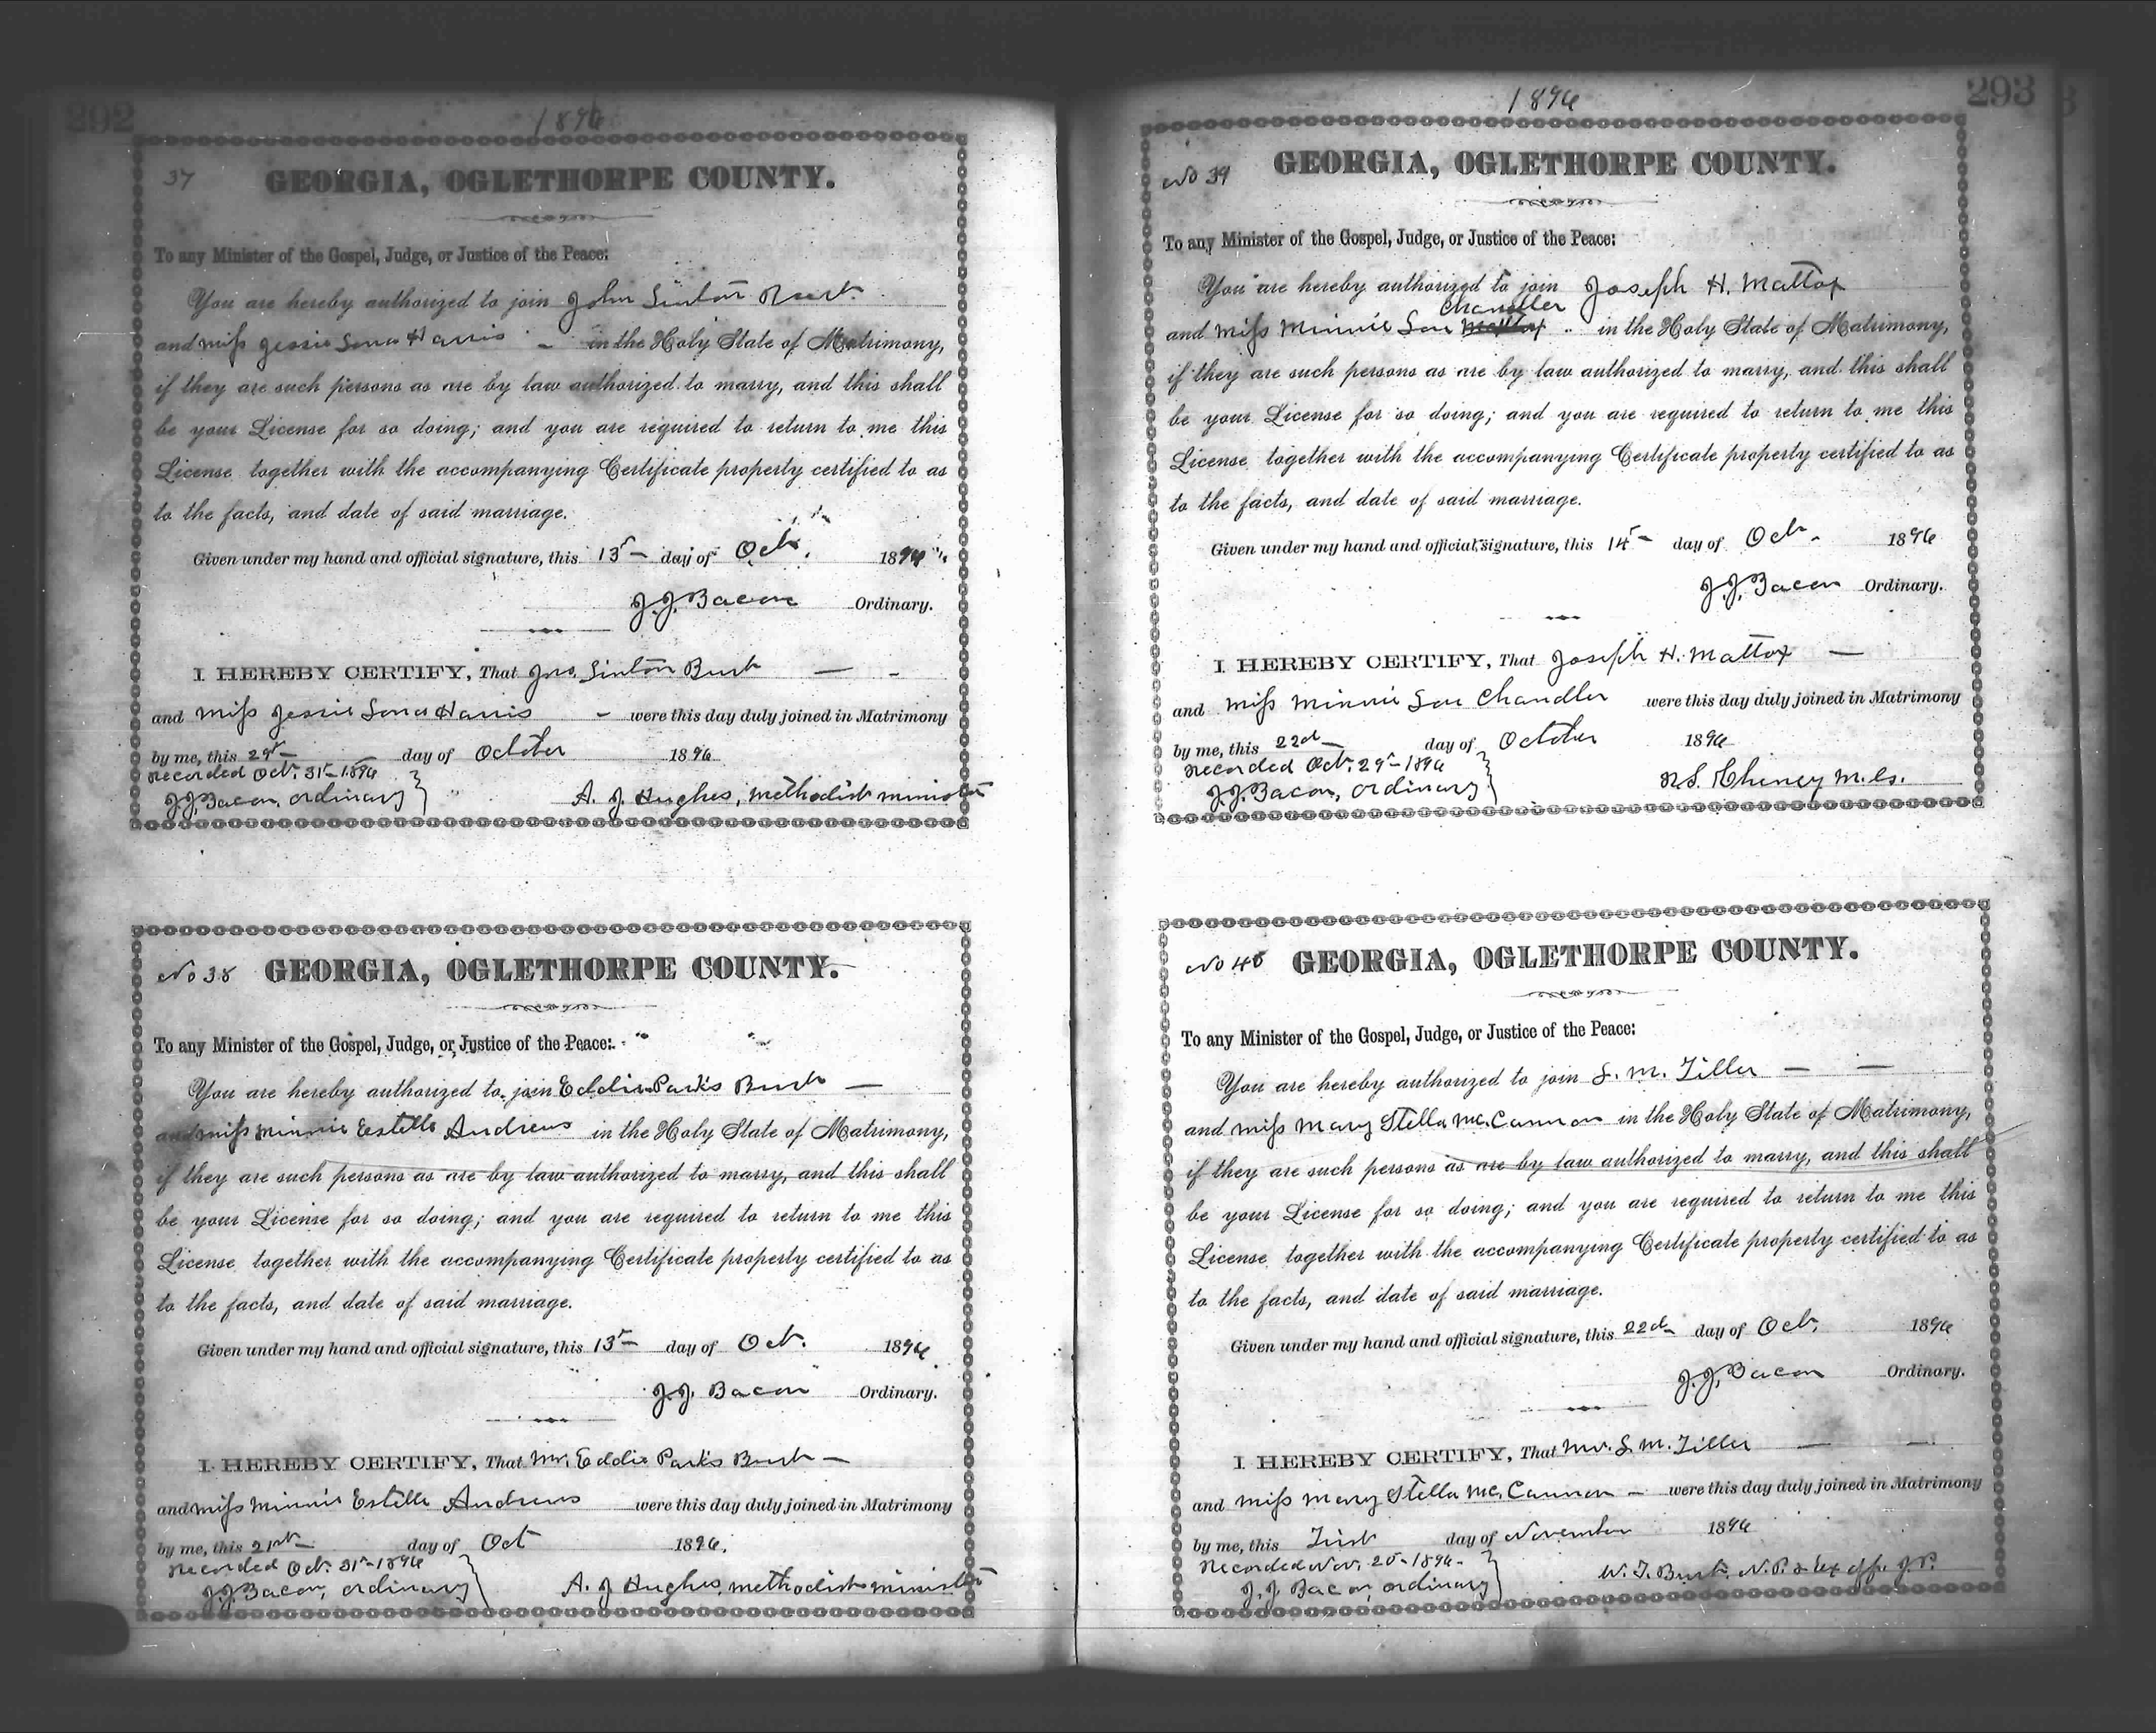 292
1896
37
GEORGIA, OGLETHORPE COUNTY.
To any Minister of the Gospel, Judge, or Justice of the Peace:
You are hereby authorized to join John Sinton
and Miss Jessie Harris - in the Holy State of Matrimony,
if they are such persons as are by law authorized to marry, and this shall
be your License for so doing; and you are required to return to me this
License together with the accompanying Certificate property certified to as
to the facts, and date of said marriage.
Given under my hand and official signature, this 13th day of Oct. 1896
J.J. Bacon Ordinary.
I HEREBY CERTIFY, That Jno. Sinton Burt —
and Miss Jessie Harris - were this day duly joined in Matrimony
by me, this day of October 1896
Recorded Oct. 31st 1896
J.J. Bacon, ordinary
A. J. Hughes, Methodist minister
No 38
GEORGIA, OGLETHORPE COUNTY.
To any Minister of the Gospel, Judge, or Justice of the Peace:
You are hereby authorized to join Eddie Parks Burt —
and Miss Minnie Estelle Andrews in the Holy State of Matrimony,
if they are such persons as are by law authorized to marry, and this shall
be your License for so doing; and you are required to return to me this
License together with the accompanying Certificate property certified to as
to the facts, and date of said marriage.
Given under my hand and official signature, this 13th day of Oct. 1896
J.J. Bacon Ordinary.
I HEREBY CERTIFY, That Mr. Eddie Parks Burt —
and Miss Minnie Estelle Andrews were this day duly joined in Matrimony
by me, this 21st day of Oct 1896.
Recorded Oct. 31st 1896
J.J. Bacon, ordinary
A. J Hughes, Methodist minister
293
1896
No 39
GEORGIA, OGLETHORPE COUNTY.
To any Minister of the Gospel, Judge, or Justice of the Peace:
You are hereby authorized to join Joseph H. Mattox
Chandler
and Miss Minnie Lou Mattox in the Holy State of Matrimony,
if they are such persons as are by law authorized to marry, and this shall
be your License for so doing; and you are required to return to me this
License together with the accompanying Certificate property certified to as
to the facts, and date of said marriage.
Given under my hand and official signature, this day of Oct. 1896
J.J. Bacon Ordinary.
I HEREBY CERTIFY, That Joseph H. Mattox —
and Miss Minnie Lou Chandler were this day duly joined in Matrimony
by me, this 22d day of October 1896
Recorded Oct. 29th 1896
J.J. Bacon, ordinary
Cheney M.G.
No 40
GEORGIA, OGLETHORPE COUNTY.
To any Minister of the Gospel, Judge, or Justice of the Peace:
You are hereby authorized to join S. M. Tiller — —
and Miss Mary Stella McCannon in the Holy State of Matrimony,
if they are such persons as are by law authorized to marry, and this shall
be your License for so doing; and you are required to return to me this
License together with the accompanying Certificate property certified to as
to the facts, and date of said marriage.
Given under my hand and official signature, this 22d day of Oct. 1896
J.J. Bacon Ordinary.
I HEREBY CERTIFY, That Mr. S. M. Tiller —
and Miss Mary Stella McCannon - were this day duly joined in Matrimony
by me, this First day of November 1896
Recorded Nov. 20 - 1896 -
J. J. Bacon, ordinary
W. T. Burt, N.P. & Ex off. J.P.